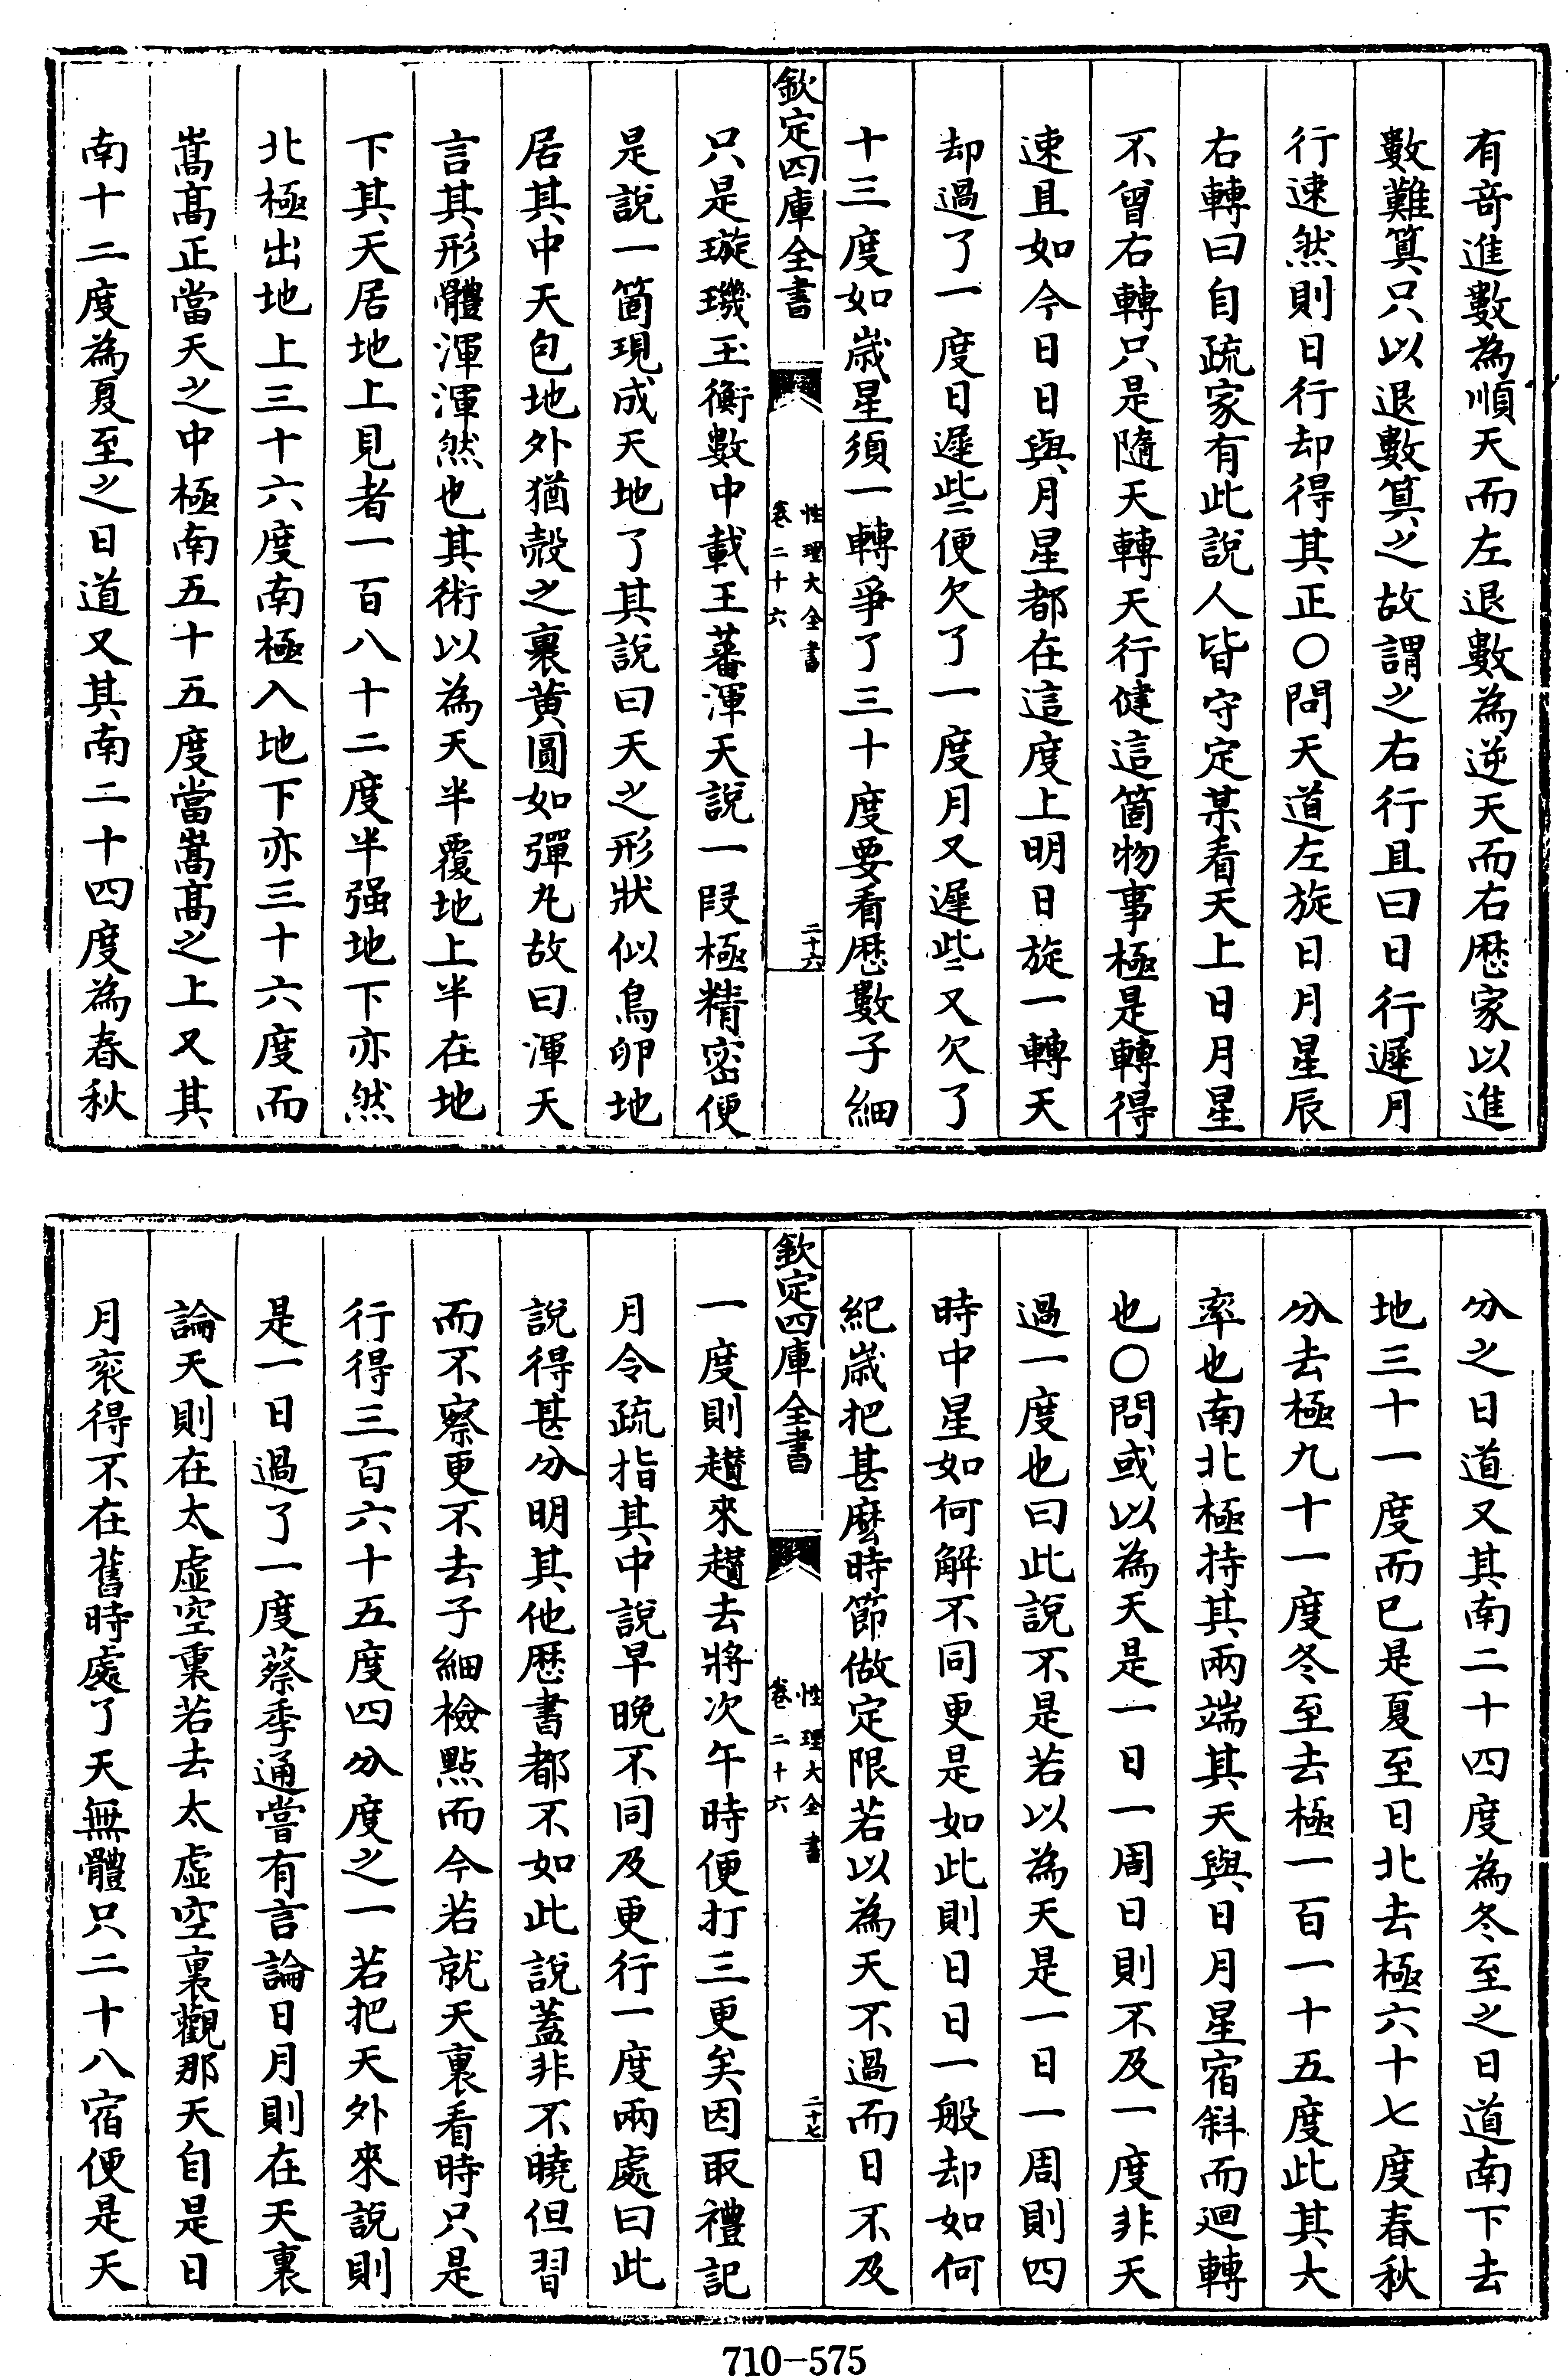 有竒進數為順天而左退數為逆天而右歴家以進
數難算只以退數算之故謂之右行且曰日行遲月
行速然則日行却得其正○問天道左旋日月星辰
右轉曰自疏家有此說人皆守定某看天上日月星
不曾右轉只是隨天轉天行健這箇物事極是轉得
速且如今日日與月星都在這度上明日旋一轉天
却過了一度日遲些便欠了一度月又遲些又欠了
十三度如歳星須一轉爭了三十度要看歴數子細
欽定四庫全書
性理大全書
卷二十六
二十六
只是璇璣玉衡數中載王蕃渾天說一段極精密便
是說一箇現成天地了其說曰天之形狀似鳥卵地
居其中天包地外猶殻之裹黄圓如彈丸故曰渾天
言其形體渾渾然也其術以為天半覆地上半在地
下其天居地上見者一百八十二度半强地下亦然
北極出地上三十六度南極入地下亦三十六度而
嵩髙正當天之中極南五十五度當嵩髙之上又其
南十二度為夏至之日道又其南二十四度為春秋
分之日道又其南二十四度為冬至之日道南下去
地三十一度而已是夏至日北去極六十七度春秋
分去極九十一度冬至去極一百一十五度此其大
率也南北極持其兩端其天與日月星宿斜而迴轉
也○問或以為天是一日一周日則不及一度非天
過一度也曰此說不是若以為天是一日一周則四
時中星如何解不同更是如此則日日一般却如何
紀歳把甚麽時節做定限若以為天不過而日不及
欽定四庫全書
性理大全書
卷二十六
二十七
一度則趲來趲去將次午時便打三更矣因取禮記
月令疏指其中說早晚不同及更行一度兩處曰此
說得甚分明其他歴書都不如此說蓋非不曉但習
而不察更不去子細檢點而今若就天裏看時只是
行得三百六十五度四分度之一若把天外來說則
是一日過了一度蔡季通嘗有言論日月則在天裏
論天則在太虚空裏若去太虚空裏觀那天自是日
月衮得不在舊時處了天無體只二十八宿便是天
710-575